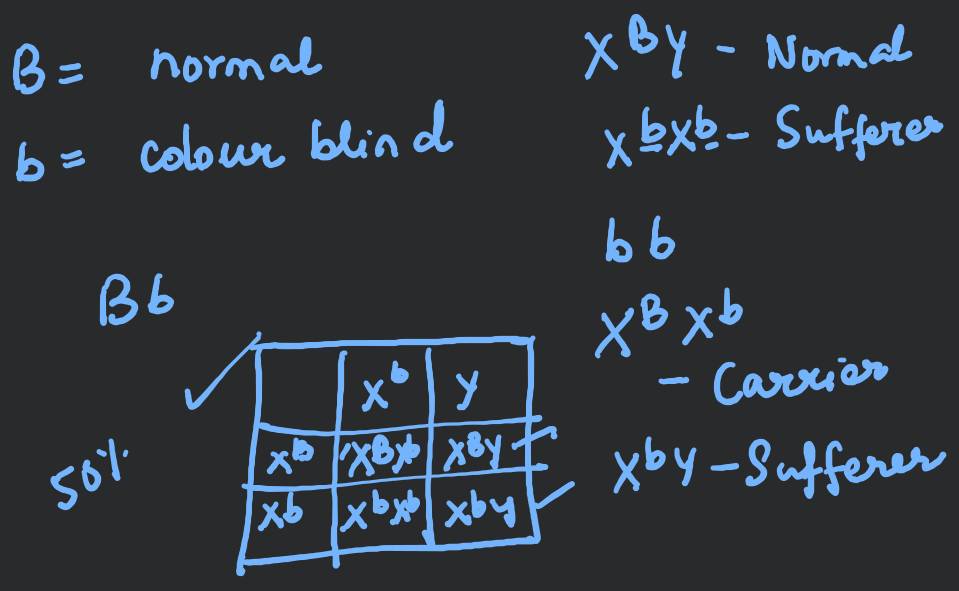 B = normal
b = colour blind
X^B Y - Normal
X^b X^b - Sufferer
b b
X^B X^b
- Carrier
X^b Y - Sufferer
Bb
50%
X^b Y
X^B X^B X^b X^B Y
X^b X^b X^b X^b Y